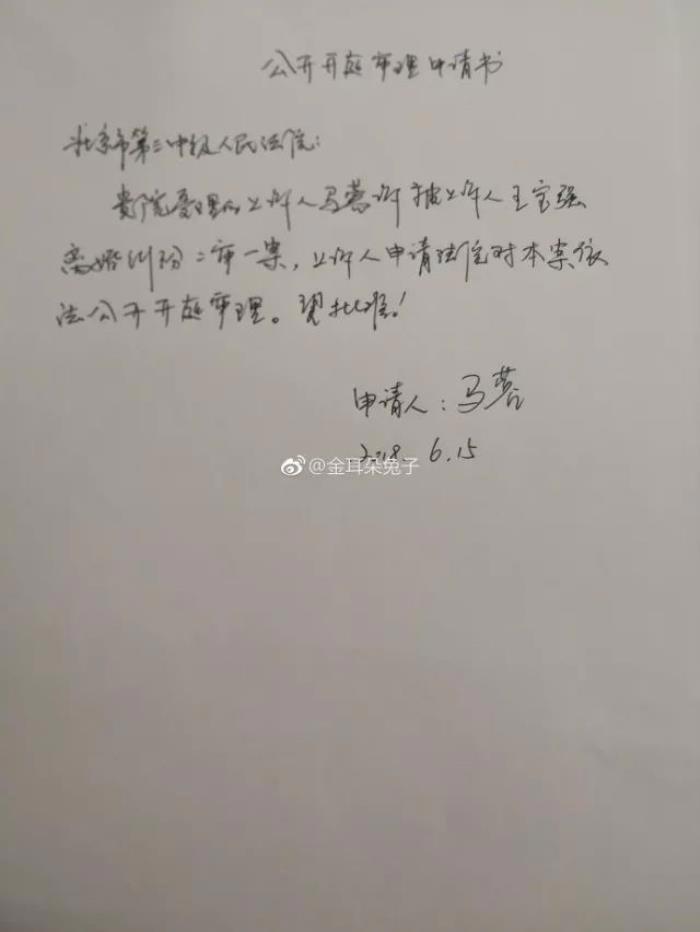 公开开庭审理申请书
北京市第三中级人民法院:
贵院受理的上诉人马蓉诉被上诉人王宝强
离婚纠纷二审一案,上诉人申请法院对本案依
法公开开庭审理。望批准!
申请人:马蓉
2018.6.15
@金耳朵兔子